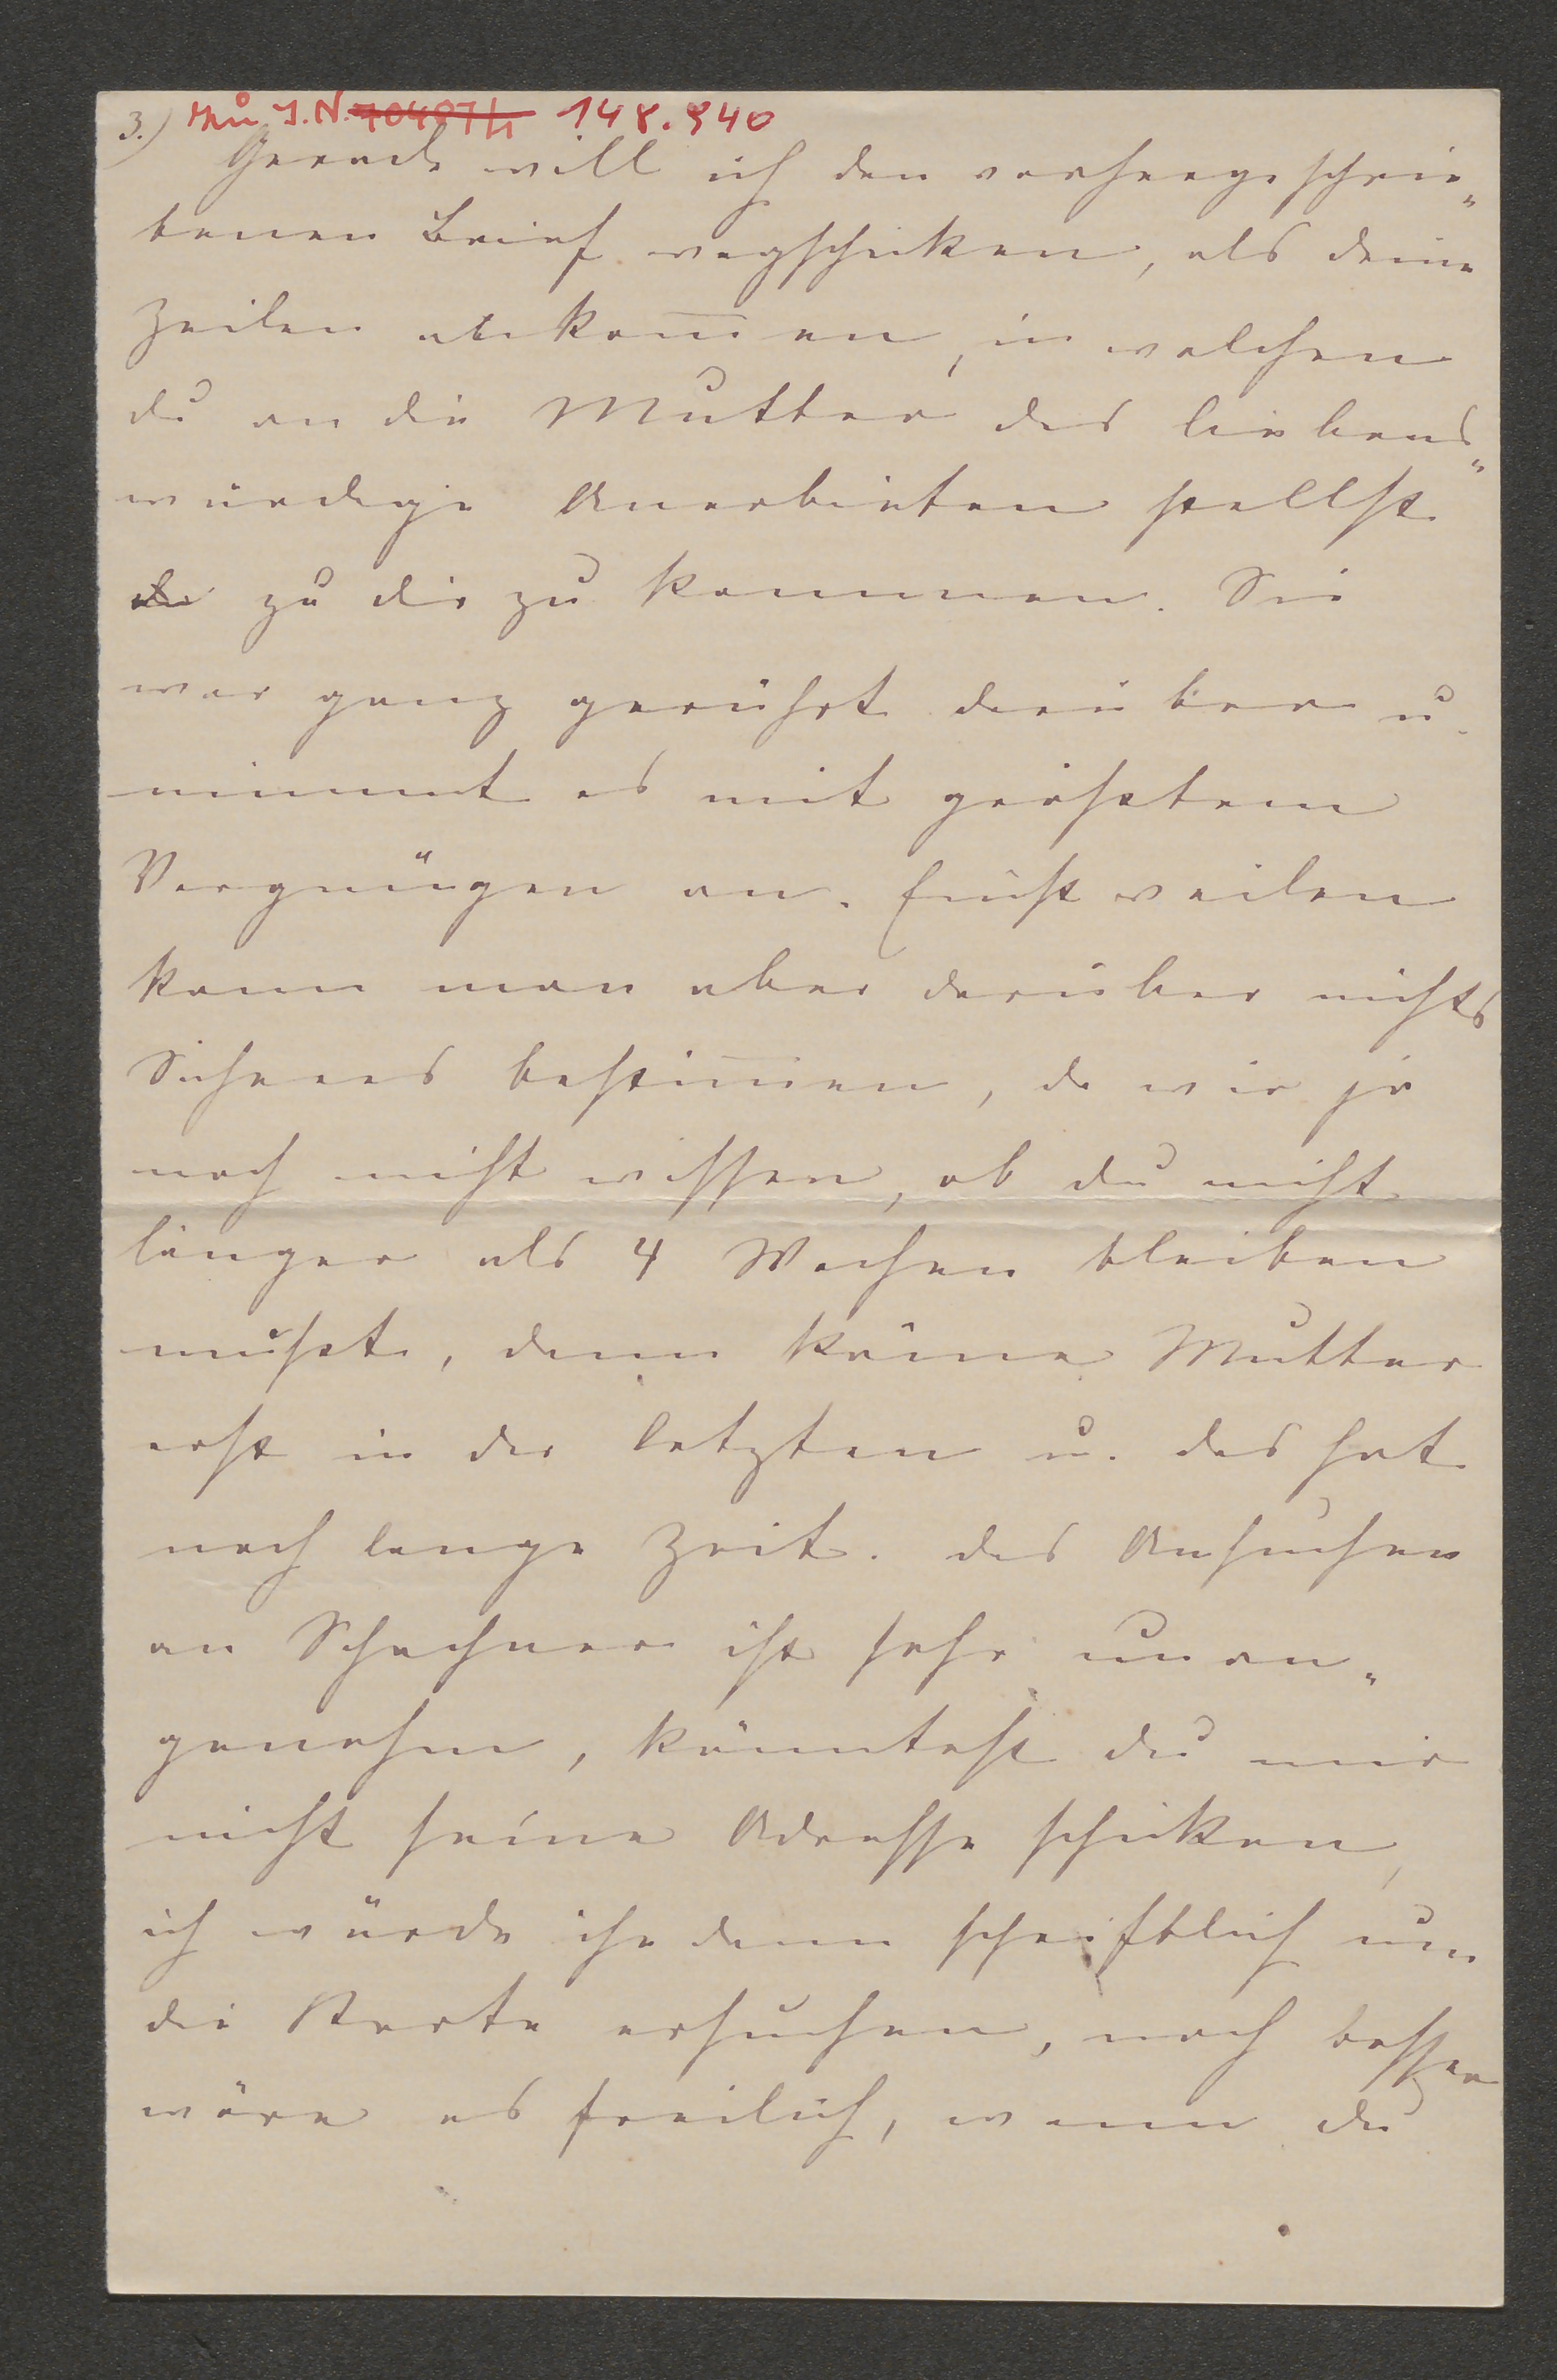 3.) zu I.N. 70407/1 148.940
Gerade will ich den vorhergeschrie„
benen Brief wegschicken, als deine
Zeilen ankom̅en, in welchen
du an die Mutter das liebens„
würdige Anerbieten stellst
zu dir zu kommen. Sie
war ganz gerührt darüber u.
nimmt es mit größtem
Vergnügen an. Einstweilen
kann man aber darüber nichts
Sicheres bestim̅en, da wir ja
noch nicht wissen, ob du nicht
länger als 4 Wochen bleiben
mußt, dann käme Mutter
erst in der letzten u. das hat
noch lange Zeit. das Ansuchen
an Schachner ist sehr unan„
genehm, könntest du mir
nicht seine Adresse schicken,
ich würde ihn dann schriftlich um
die Karte ersuchen, noch besser
wäre es freilich, wenn du